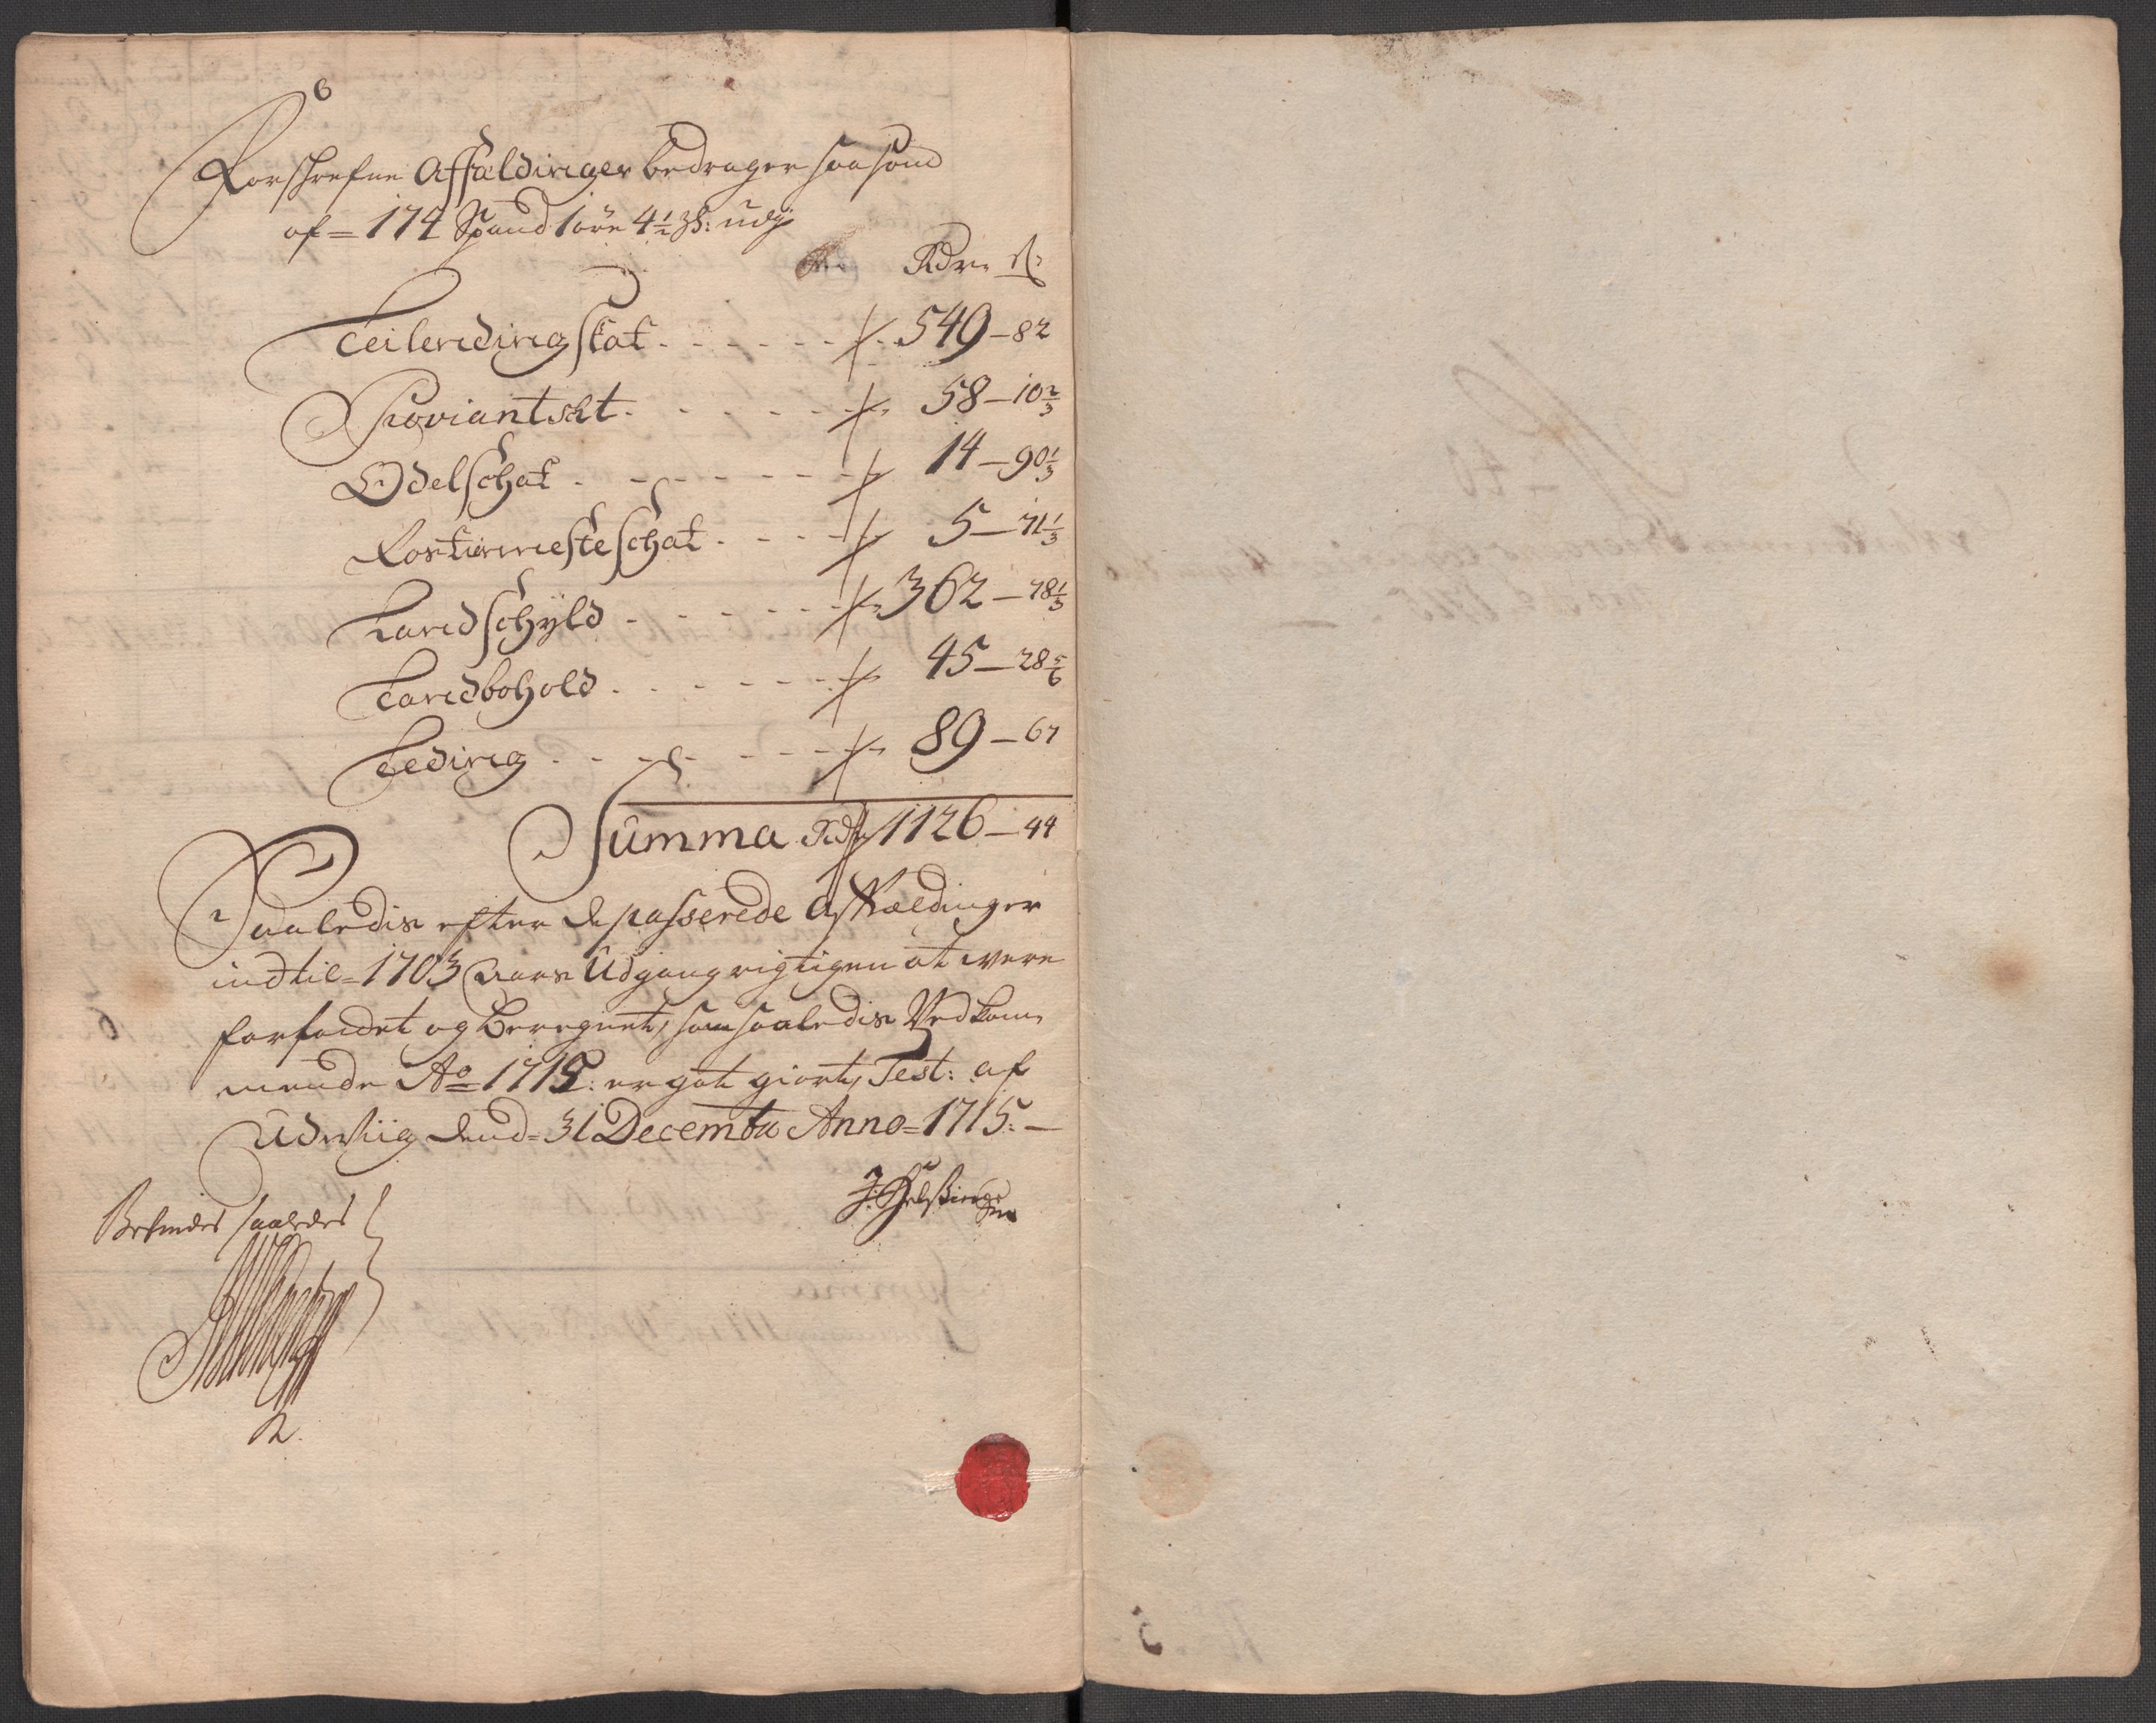 6
Forschrefne Affældinger bedrager saasom
af = 174 Spand 1 øre 4½ ... udj
Rdr. s:
Leilendingskat - - - - - 549 – 82
Proviantskt - - - - - 58 – 10⅔
Odelschat - - - - - 14 – 90⅓
Fortimesteschat - - - - 5 – 71⅓
Landschyld - - - - - 362 – 78⅓
Landbohold - - - - - 45 – 28⅚
Leding - - - - - 89 – 67
Summa Rdr 1126 – 44
Saaledis efter de passerede Affældinger
indtil = 1703 Aars Udgang rigtigen at were
forfardet og beregnet, som saaledis Vedkom,
mende Ao 1715: er got giort, Test: af
Udwiig dend = 31 Decembr Anno = 1715: –
Befindes saaledes